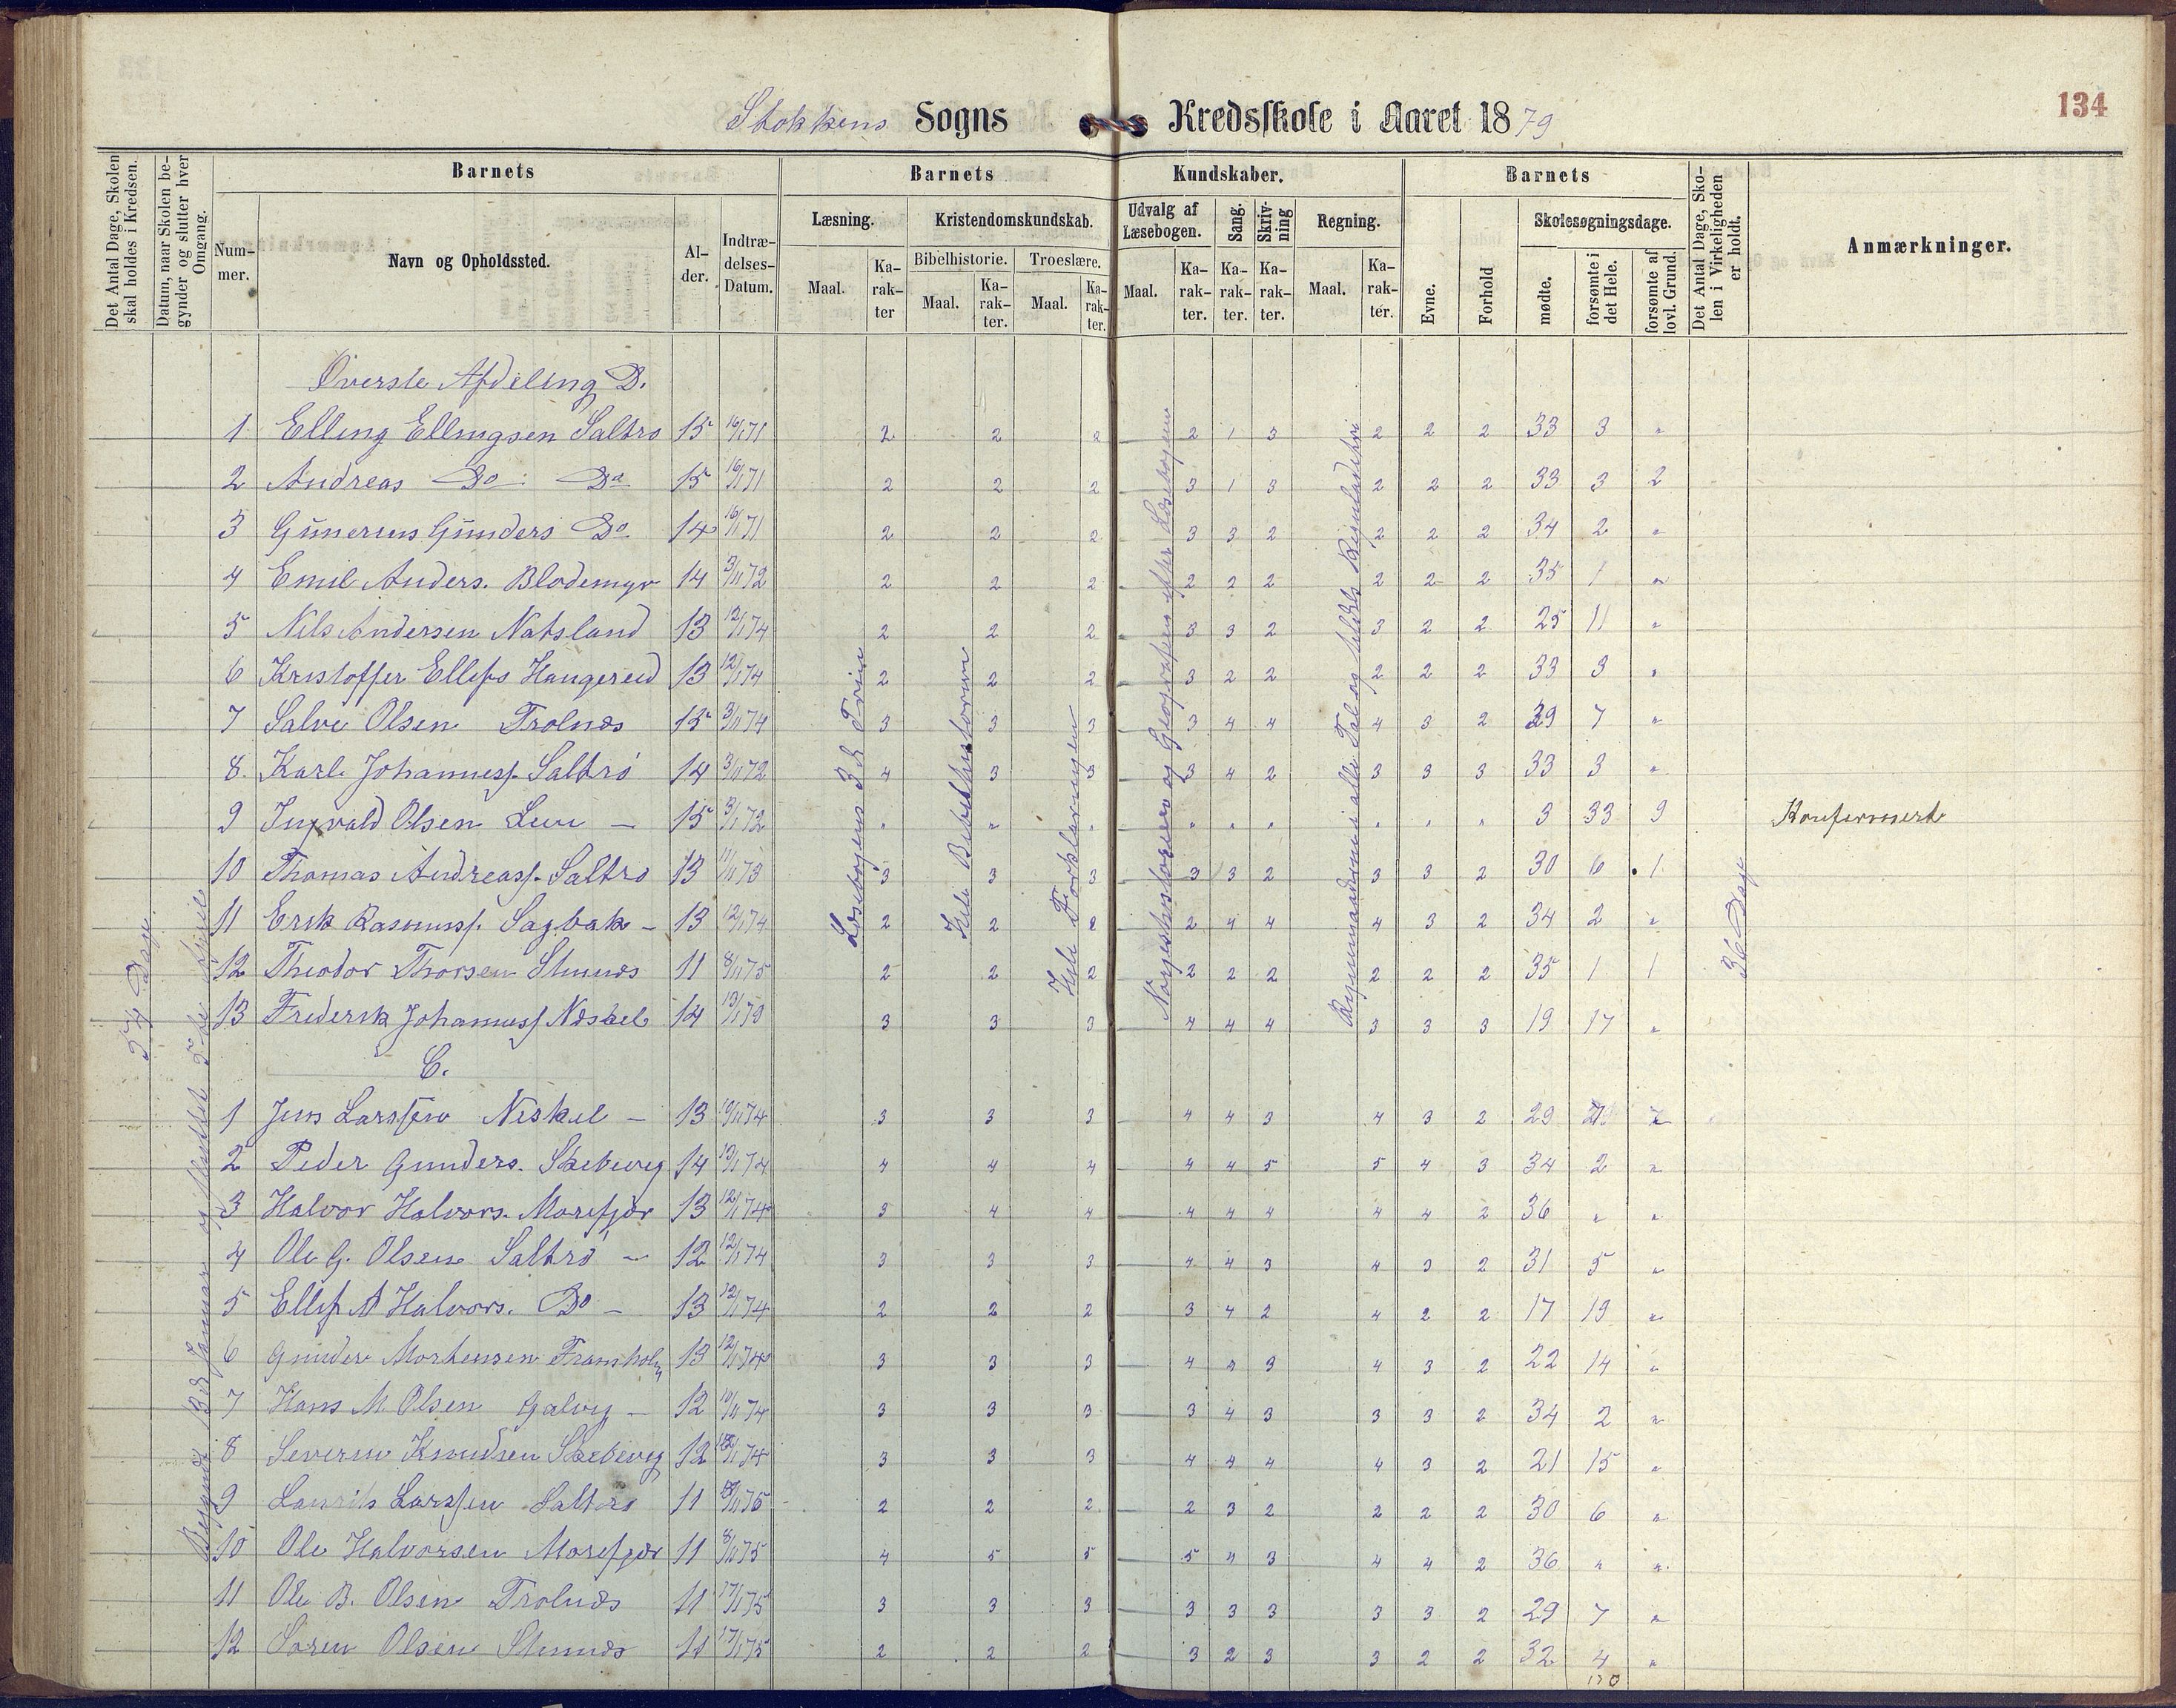 134
Stokkens Sogns Kredsskole i Aaret 1879
Det Antal Dage, Skolen skal holdes i Kredsen.
Datum, naar Skolen begynder og slutter hver Omgang.
Barnets
Nummer.
Navn og Opholdssted.
Alder.
Indtrædelses-Datum.
Barnets Kundskaber.
Læsning.
Maal.
Karakter
Kristendomskundskab.
Bibelhistorie.
Maal.
Karakter.
Troeslære.
Maal.
Karakter.
Udvalg af Læsebogen.
Maal.
Karakter.
Sang.
Karakter.
Skrivning
Karakter.
Regning.
Maal.
Karakter.
Barnets
Evne.
Forhold
Skolesøgningsdage.
mødte.
forsømte i det Hele.
forsømte af lovl. Grund.
Det Antal Dage, Skolen i Virkeligheden er holdt.
Anmærkninger.
54 Dage.
Begyndt 13de Januar og sluttet 5te April
Læsebogens 3die Trin
Hele Bibelhistorien
Hele Forklaringen
Norgeshistorien og Geografien efter Læsebogen
36 Dage
Øverste Afdeling D.
1 Elling Ellingsen Saltrø 15 16/1 71 2 2 2 2 1 3 2 2 2 33 3 "
2 Andreas Do: Do 15 16/1 71 2 2 2 3 1 3 2 2 2 33 3 2
3 Gunerius Gunders Do 14 16/1 71 2 2 2 3 3 2 2 2 2 34 2 "
4 Emil Anders. Blodemyr 14 3/11 72 2 2 2 2 2 2 2 2 2 35 1 "
5 Nils Andersen Natsland 13 12/1 74 2 2 2 3 3 2 3 2 2 25 11 "
6 Kristoffer Ellefs Haugereid 13 12/1 74 2 2 2 3 2 2 2 2 2 33 3 "
7 Salve Olsen Trolnæs 15 3/11 74 3 3 3 3 4 4 4 3 2 29 7 "
8. Karl Johanness. Saltrø 14 3/11 72 4 3 3 3 4 2 3 3 3 33 3 "
9 Ingvald Olsen 15 3/1 72 " " " " " " " " " 3 33 9 Konfirmert
10 Thomas Andreass. Saltrø 13 11/1 73 3 3 3 3 3 2 3 3 2 30 6 1
11 Erik Rasmuss. Sagbak - 13 12/1 74 2 2 2 2 4 4 4 3 2 34 2 "
12 Theodor Thorsen Stumnæs 11 8/11 75 2 2 2 2 2 2 2 2 2 35 1 1
13 Frederik Johanness Neskel 14 13/1 73 3 3 3 4 4 4 3 3 3 19 17 "
C.
1 Jens Larssen Neskel - 13 10/11 74 3 3 3 4 4 3 4 3 2 29 7
2 Peder Gunders. 14 13/1 74 4 4 4 4 4 5 5 4 3 34 2 "
3 Halvor Halvors. Morefjær 13 12/1 74 3 4 4 4 4 4 4 4 2 36 " "
4 Ole G. Olsen Saltrø - 12 12/1 74 3 3 3 4 4 3 4 3 2 31 5 "
5 Ellef A Halvors. Do - 13 12/1 74 2 2 2 3 4 2 4 2 2 17 19 "
6 Gunder Mortensen Framholm 13 12/1 74 3 3 3 4 3 3 4 3 2 22 14 "
7 Hans M. Olsen Galvig - 12 10/11 74 3 3 3 3 4 3 3 3 2 34 2 "
8 Severin Knudsen 12 74 3 3 3 4 4 4 4 3 2 21 15 "
9 Laurits Larssen Saltrø 11 75 2 2 2 2 3 2 2 2 2 30 6 "
10 Ole Halvorsen Morefjær 11 8/11 75 4 5 5 5 4 3 4 4 2 36 " "
11 Ole B. Olsen Trolnæs 11 17/1 75 3 3 3 3 3 3 3 3 2 29 7 "
12 Søren Olsen Stumnæs 11 17/1 75 2 2 2 3 2 3 3 2 2 32 4 "